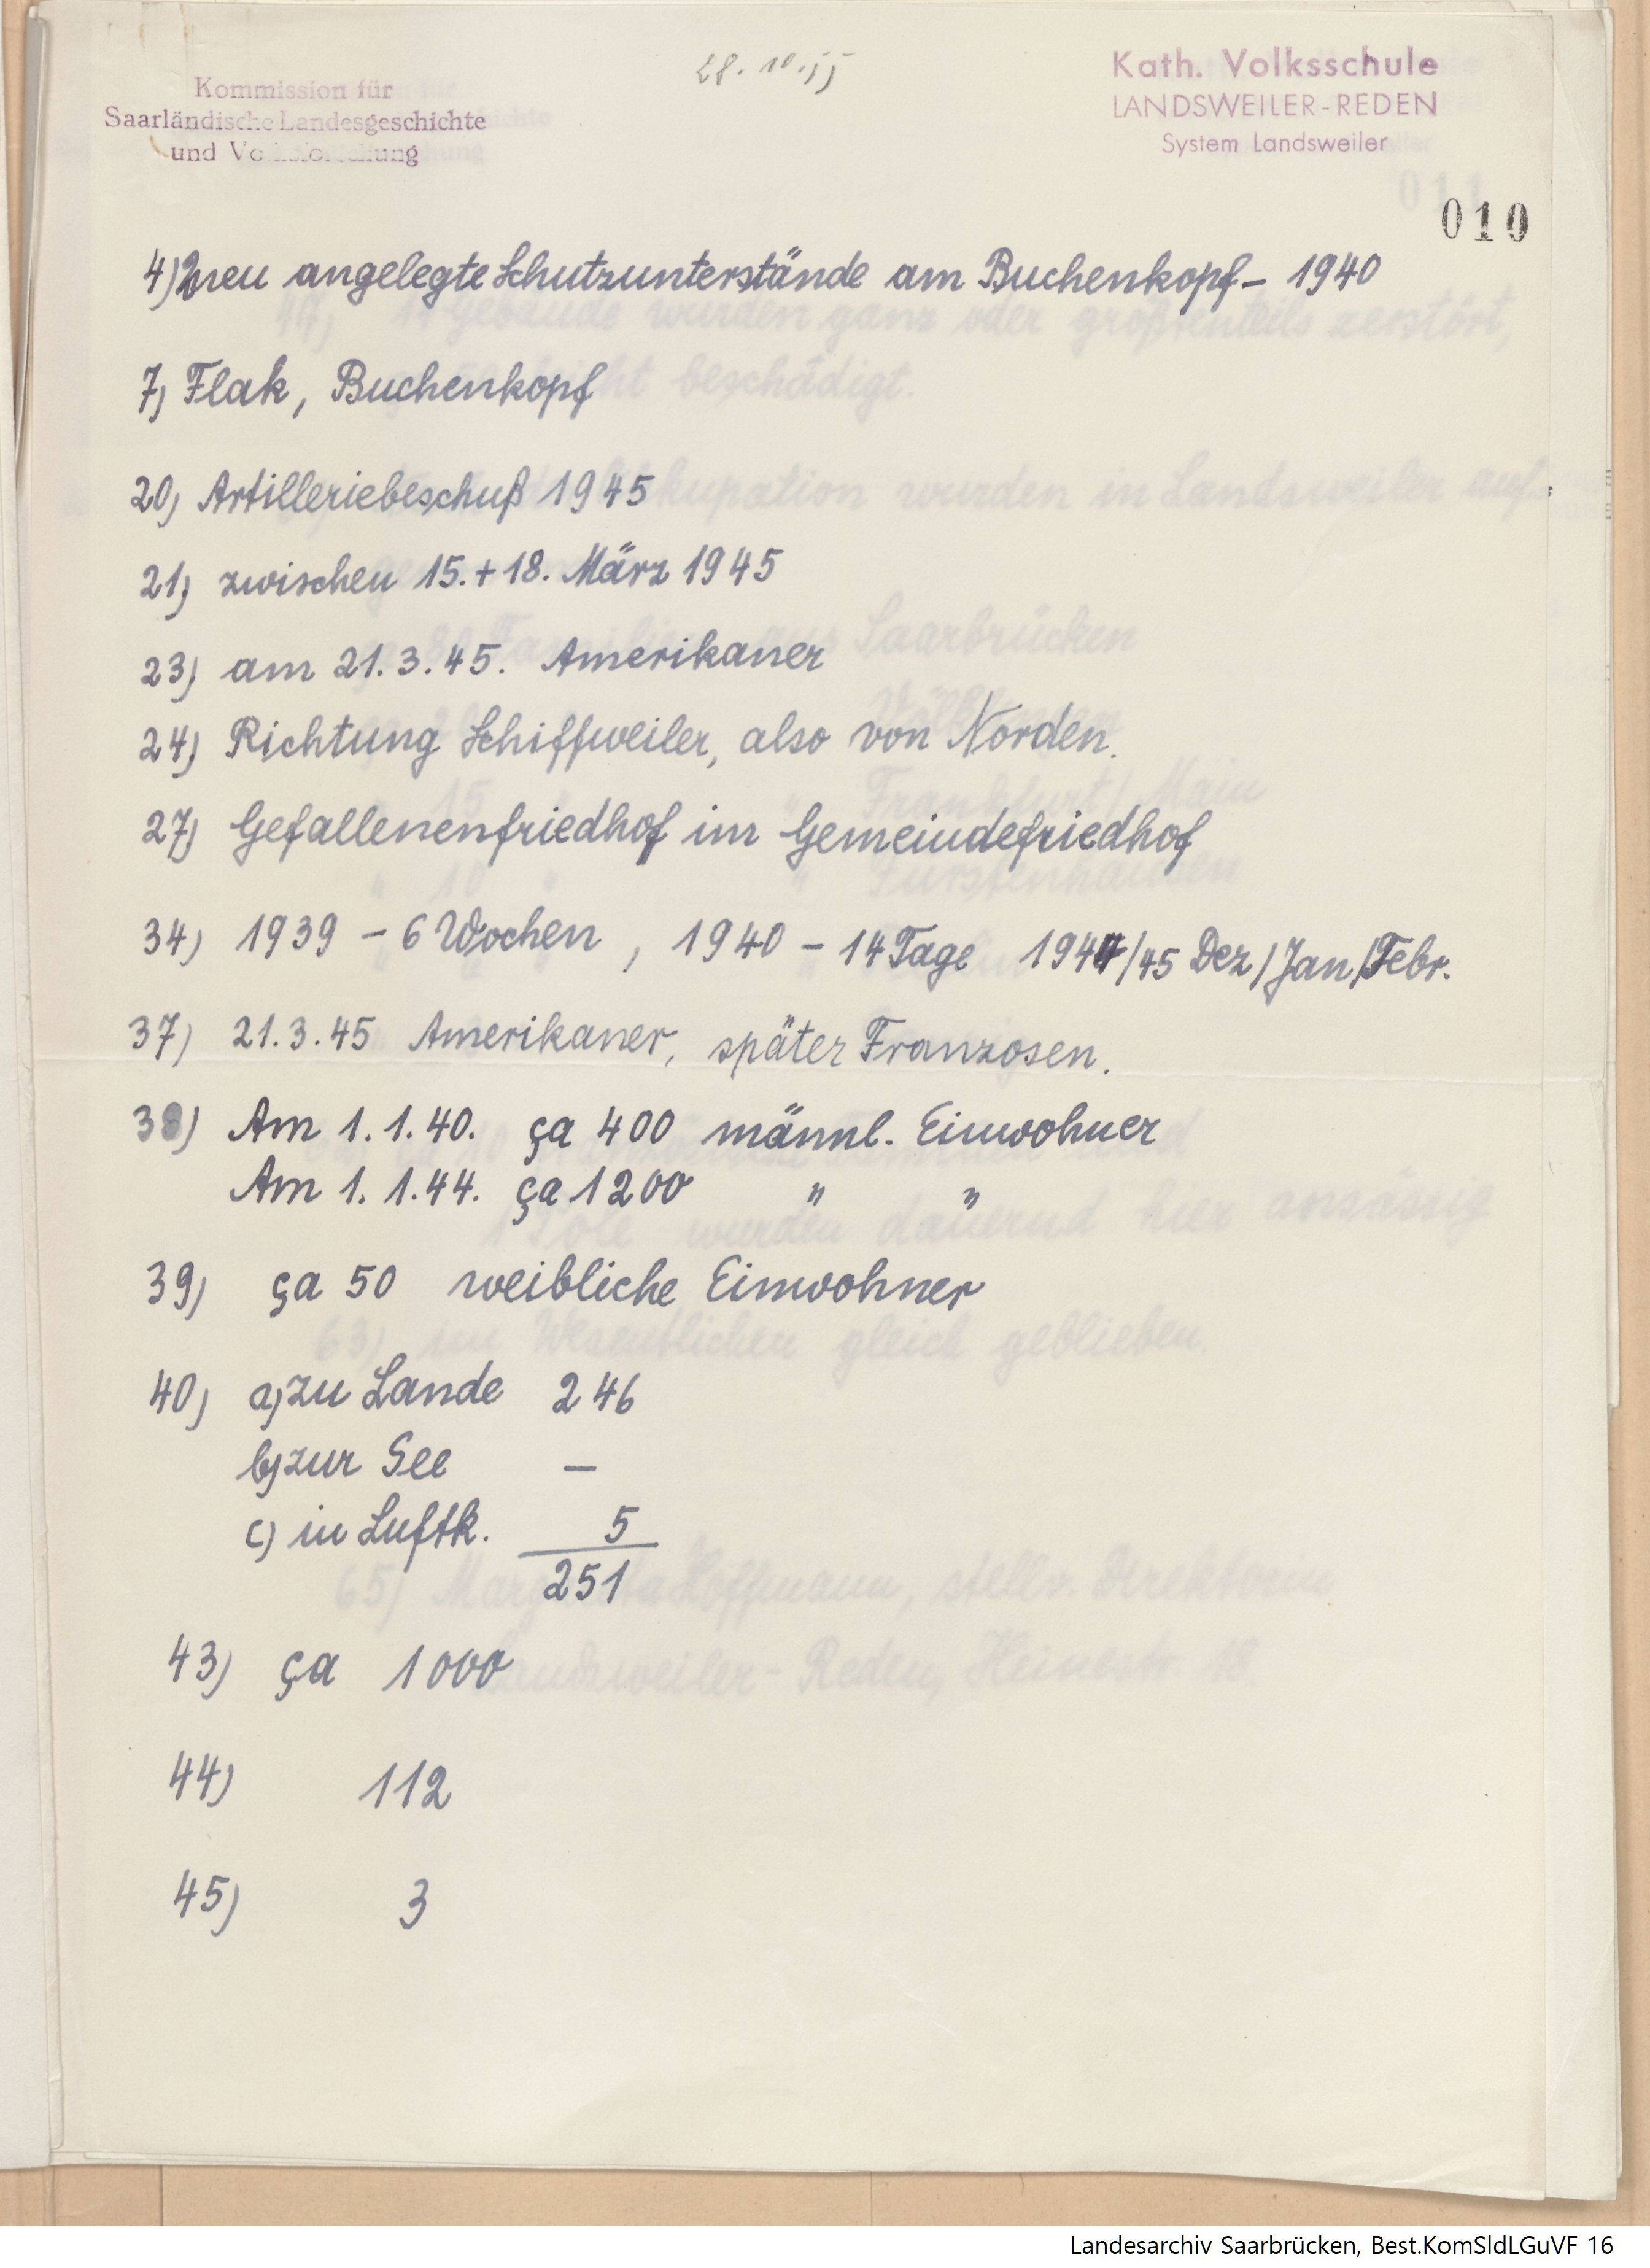 28.10.55
Kommission für
Saarländische Landesgeschichte
und Volksforschung
Kath. Volksschule
LANDSWEILER-REDEN
System Landsweiler
010
4) 2 neu angelegte Schutzunterstände am Buchenkopf – 1940
7) Flak, Buchenkopf
20) Artilleriebeschuß 1945
21) zwischen 15. + 18. März 1945
23) am 21.3.45. Amerikaner
24) Richtung Schiffweiler, also von Norden.
27) Gefallenenfriedhof im Gemeindefriedhof
34) 1939 – 6 Wochen, 1940 – 14 Tage 1944/45 Dez/Jan/Febr.
37) 21.3.45 Amerikaner, später Franzosen.
38) Am 1.1.40. ça 400 männl. Einwohner
Am 1.1.44. ça 1200 " "
39) ça 50 weibliche Einwohner
40) a) zu Lande 246
b) zur See –
c) in Luftk. 5
251
43) ça 1000
44) 112
45) 3
Landesarchiv Saarbrücken, Best.KomSldLGuVF 16